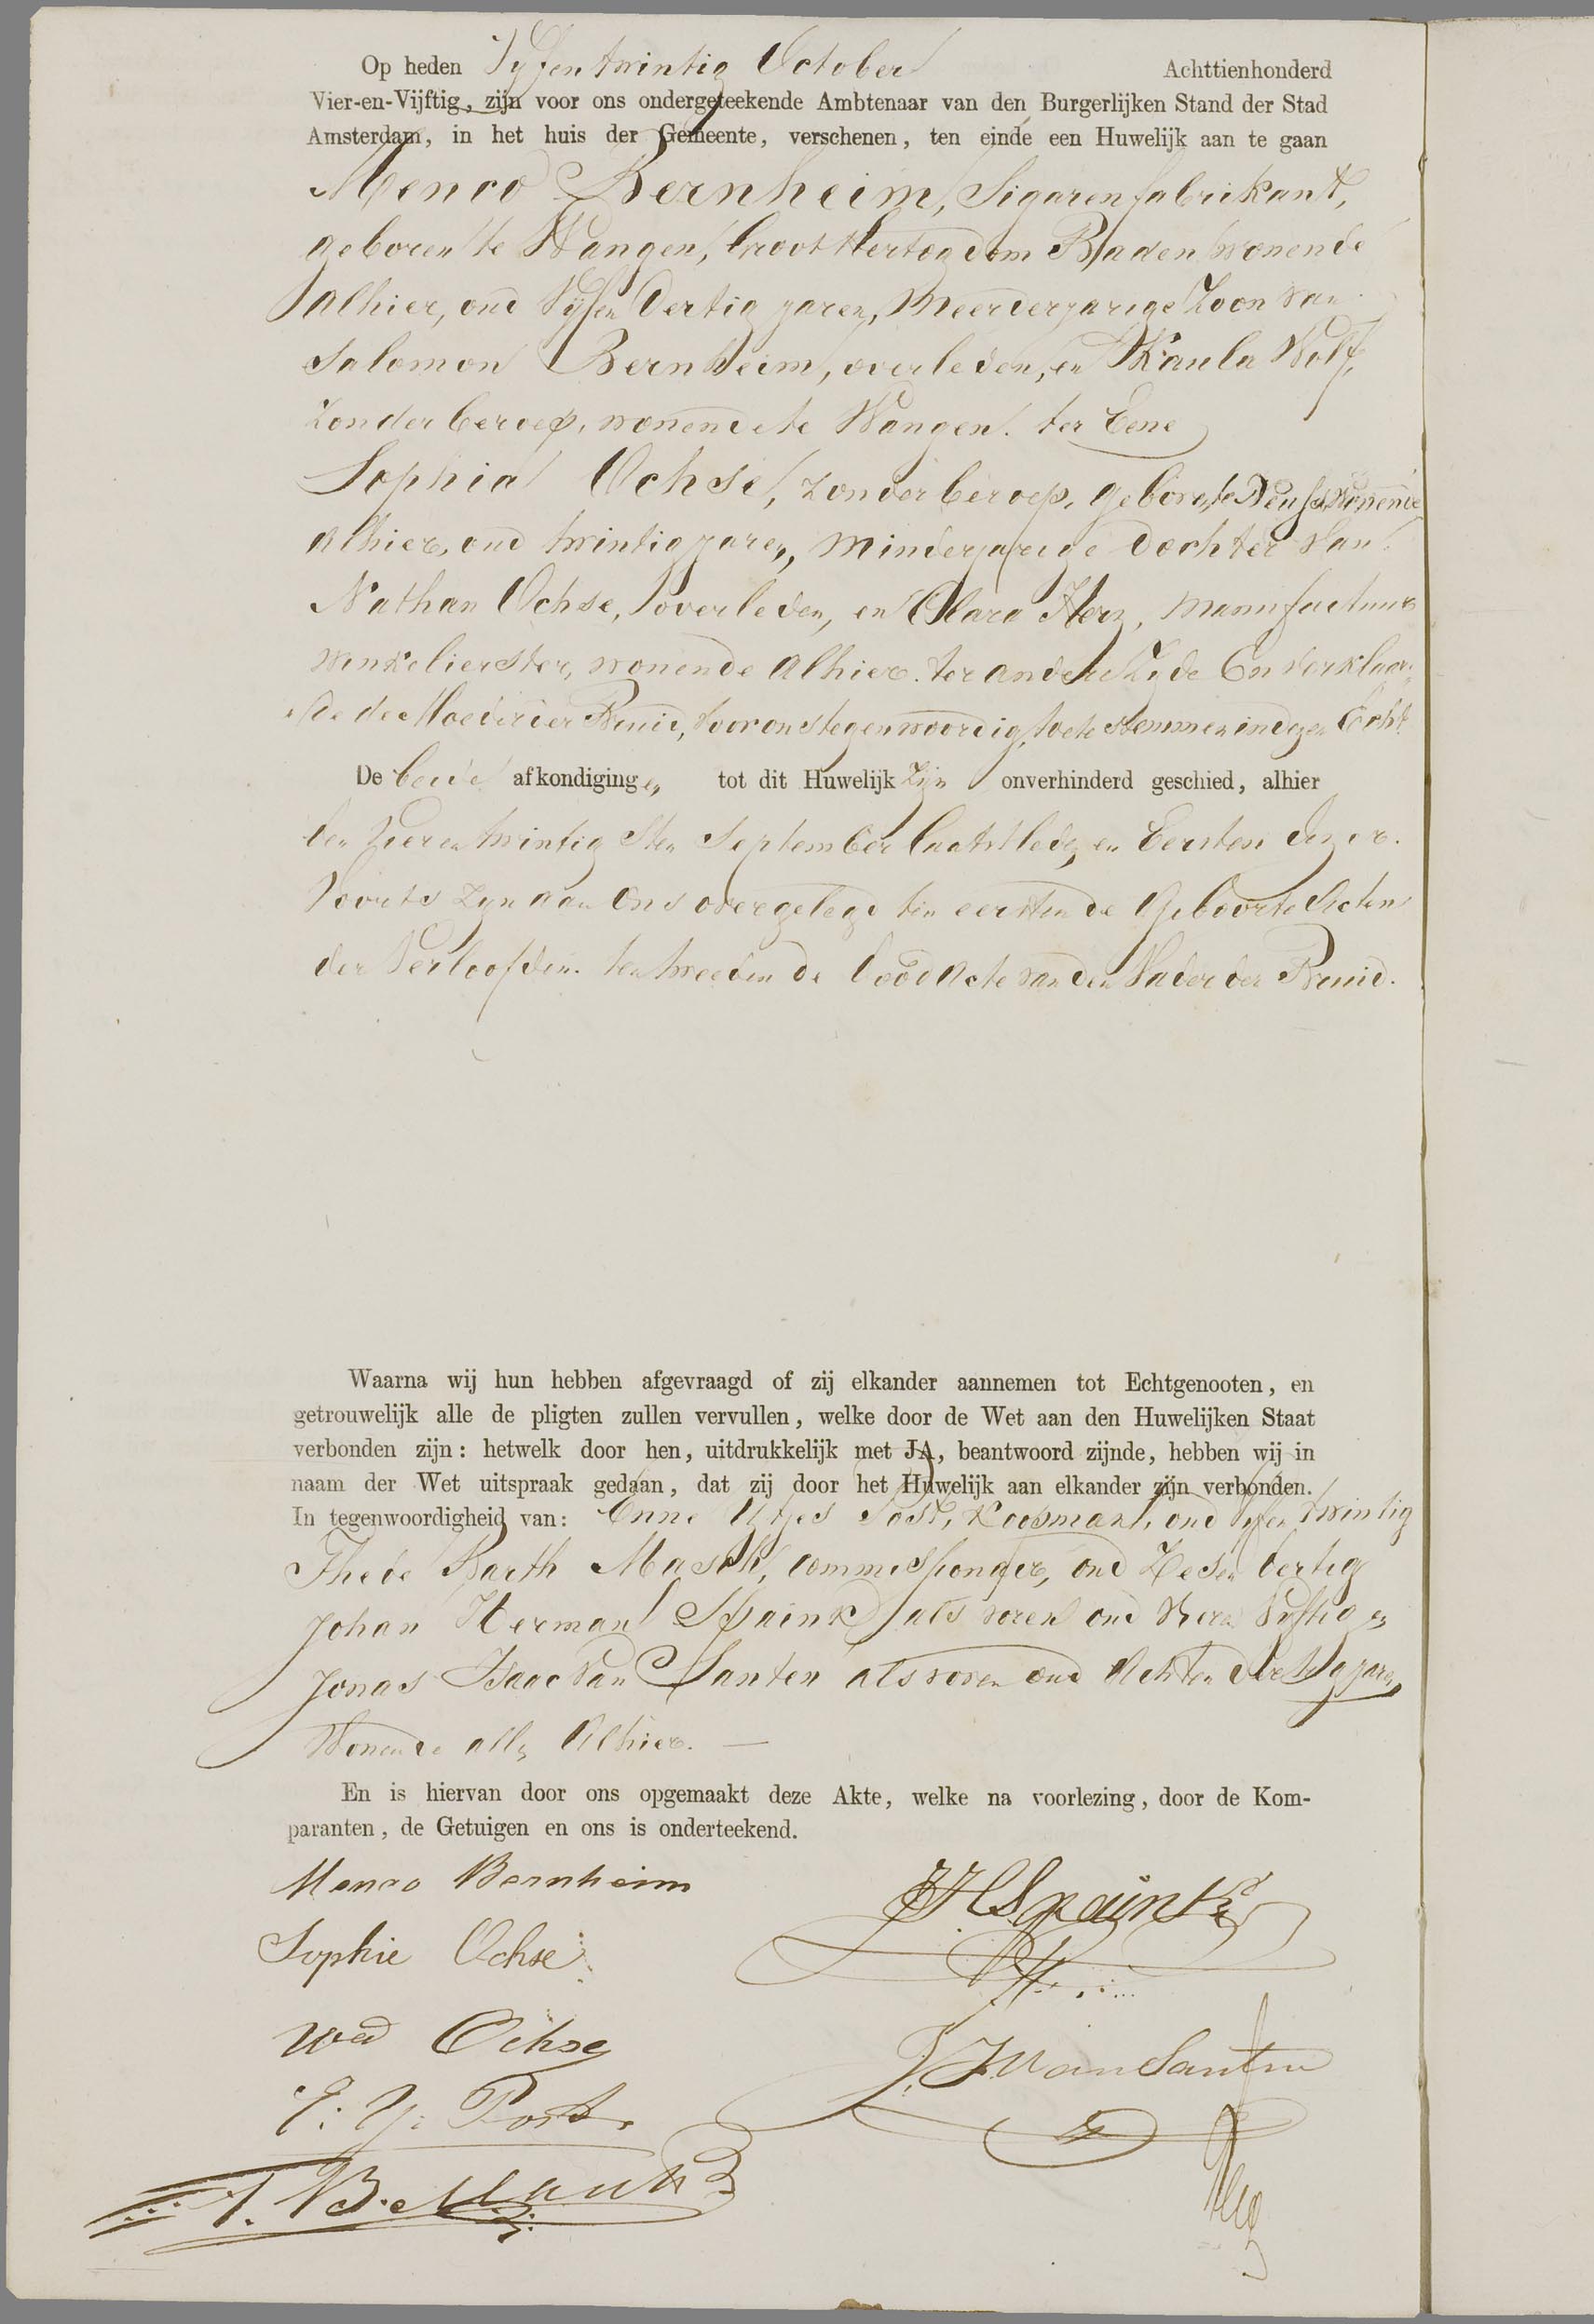 Op heden Vyfentwintig October Achttienhonderd
Vier-en-Vijftig, zijn voor ons ondergeteekende Ambtenaar van den Burgerlijken Stand der Stad
Amsterdam, in het huis der Gemeente, verschenen, ten einde een Huwelijk aan te gaan
Menco Bernheim, Sigarenfabrikant,
geboren te Wangen, Groot Hertogdom Baden, wonende
alhier, oud Vyfen Dertig jaren, Meerderjarige Zoon van
Salomon Bernheim, overleden, en Kaula Wolf,
Zonder beroep, wonende te Wangen. ter Eene
Sophia Ochse, zonder beroep, geboren te Neuss, wonende
Alhier, oud twintig jaren, Minderjarige Dochter van
Nathan Ochse, overleden, en Clara Herz, Manufactuur
winkelierster, wonende Alhier. ter andere Zyde En verklaar-
de de Moeder der Bruid, voor ons tegenwoordig, toe te stemmen in dezen Echt
De beide afkondigingen tot dit Huwelijk Zyn onverhinderd geschied, alhier
den Vier en twintigsten September laatstleden en Eersten dezer.
Voorts zyn aan Ons overgelegd ten eersten de Geboorte Acten
der Verloofden. ten tweeden de Dood Acte van den Vader der Bruid.
Waarna wij hun hebben afgevraagd of zij elkander aannemen tot Echtgenooten, en
getrouwelijk alle de pligten zullen vervullen, welke door de Wet aan den Huwelijken Staat
verbonden zijn: hetwelk door hen, uitdrukkelijk met JA, beantwoord zijnde, hebben wij in
naam der Wet uitspraak gedaan, dat zij door het Huwelijk aan elkander zijn verbonden.
In tegenwoordigheid van: Enne Post, Koopman, oud Vyfen twintig
Thede Barth Commissionair, oud Zesen dertig
Johan Herman Spaink als voren oud Vieren Vyftig en
Jonas Isaac van Santen als voren oud Achten dertig jaren,
Wonende allen Alhier. —
En is hiervan door ons opgemaakt deze Akte, welke na voorlezing, door de Kom-
paranten, de Getuigen en ons is onderteekend.
Menco Bernheim
JHSpaink
Sophie Ochse
wed Ochse
J. I. van Santen
E. Y. Post
T. B.